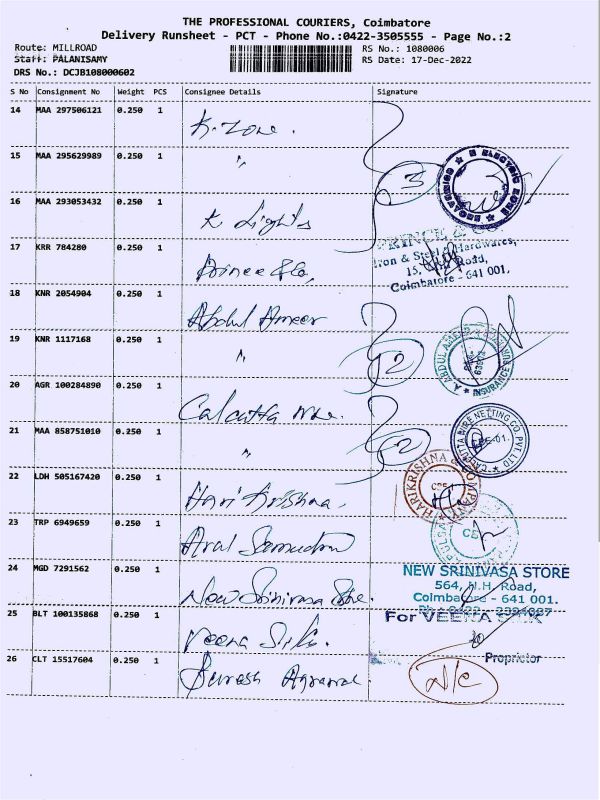 THE PROFESSIONAL COURIERS, Coimbatore
Delivery Runsheet - PCT - Phone No.:0422-3505555 - Page No.:2
Route: MILLROAD
RS No.: 1080006
Staff: PALANISAMY
RS Date: 17-Dec-2022
DRS No.: DCJB108000602
S No Consignment No Weight PCS Consignee Details Signature
14 MAA 297506121 0.250 1 K. Zone.
15 MAA 295629989 0.250 1 " 3
16 MAA 293053432 0.250 1 K Lights
17 KRR 784280 0.250 1 Prince & Co,
PRINCE &
Iron & Steel Hardwares,
15, Road,
Coimbatore - 641 001.
18 KNR 2054904 0.250 1 Abdul Ameer
19 KNR 1117168 0.250 1 " 2
INSURANCE
20 AGR 100284890 0.250 1 Calcutta Wire.
21 MAA 858751010 0.250 1 " 2
CALCUTTA WIRE NETTING CO. PVT LTD
22 LDH 505167420 0.250 1 Hari Krishna.
HARIKRISHNA & COMPANY
23 TRP 6949659 0.250 1
24 MGD 7291562 0.250 1 New Srinivasa Store.
NEW SRINIVASA STORE
564, N.H. Road,
Coimbatore - 641 001.
25 BLT 100135868 0.250 1 Veena Silk.
For VEENA SILK
Proprietor
26 CLT 15517604 0.250 1 Suresh Agrawal. N/C